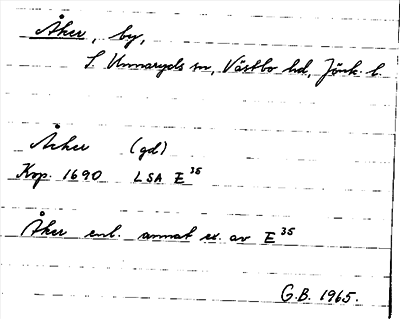 Åker, by,
S. Unnaryds sn, Västbo hd, Jönk. l.
Åcker (gd)
Kop. 1690 LSA E³⁵
Åker enl. annat ex. av E³⁵
G.B. 1965.